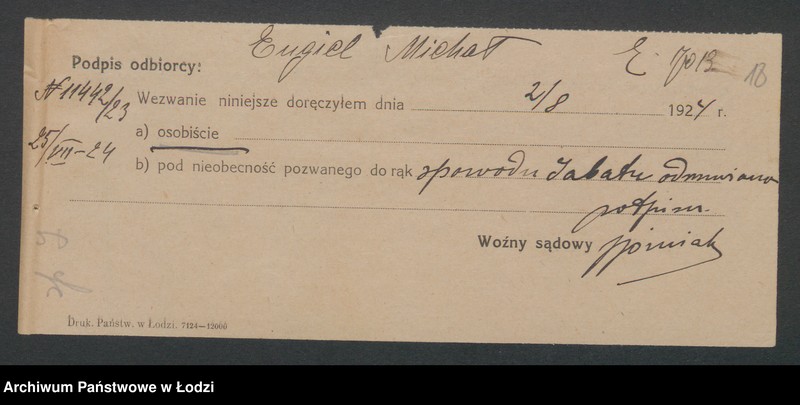 Engiel Michał
Podpis odbiorcy:
N 11442/23 Wezwanie niniejsze doręczyłem dnia 2/8 1924 r.
25/VII-24 a) osobiście
b) pod nieobecność pozwanego do rąk spowodu Sabatu odmuwiono
potpisu.
Woźny sądowy
Druk. Państw. w Łodzi. 7124—12000
18
Archiwum Państwowe w Łodzi